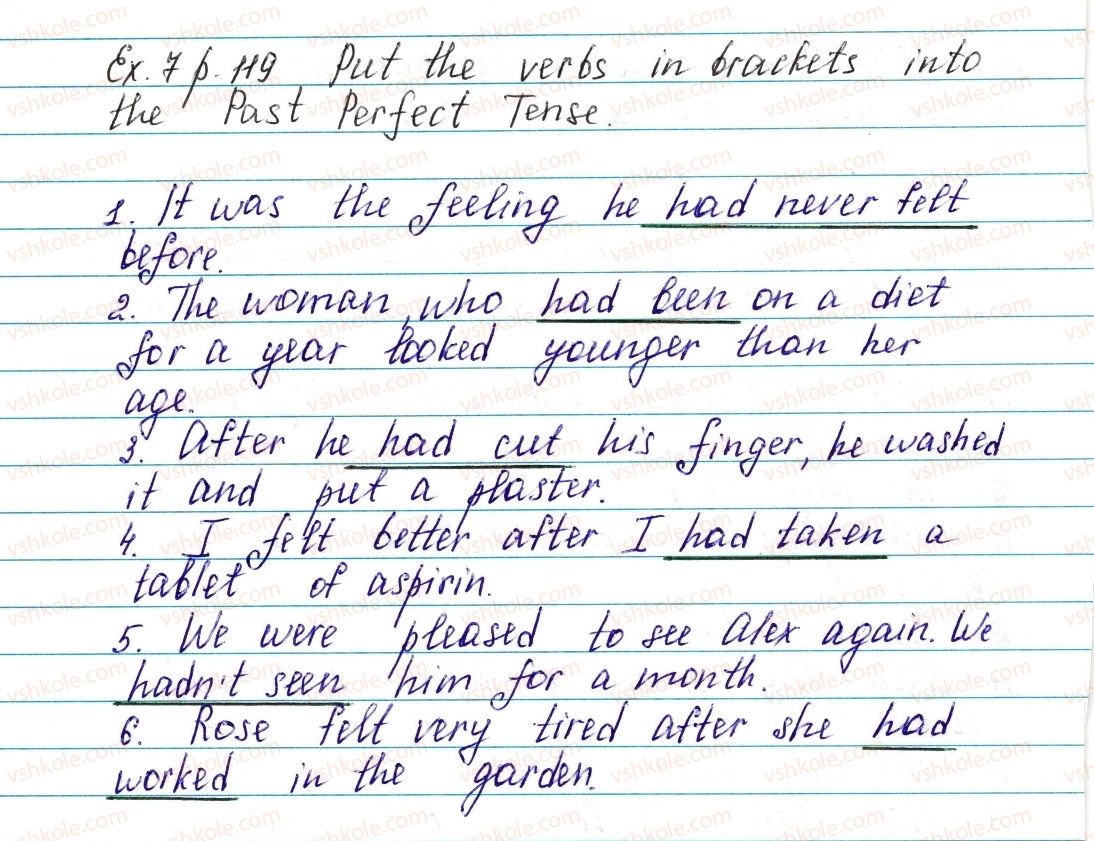 Ex. 7 p. 119 Put the verbs in brackets into
the Past Perfect Tense.
1. It was the feeling he had never felt
before.
2. The woman who had been on a diet
for a year looked younger than her
age.
3. After he had cut his finger, he washed
it and put a plaster.
4. I felt better after I had taken a
tablet of aspirin.
5. We were pleased to see Alex again. We
hadn't seen him for a month.
6. Rose felt very tired after she had
worked in the garden.
vshkole.com